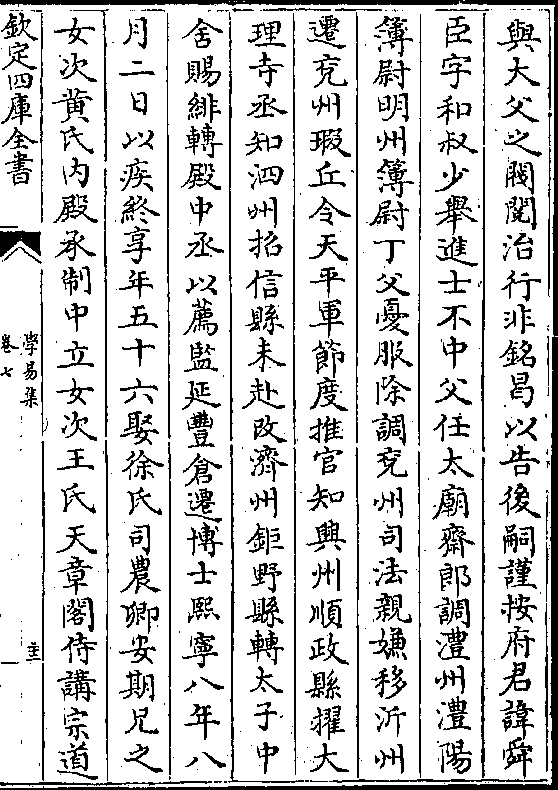 與大父之閥閱治行非銘曷以告後嗣謹按府君諱舜
臣字和叔少舉進士不中父任太廟齋郎調澧州澧陽
簿尉明州簿尉丁父憂服除調兖州司法親嫌移沂州
遷兖州瑕丘令天平軍節度推官知興州順政縣擢大
理寺丞知泗州招信縣未赴改濟州鉅野縣轉太子中
舍賜緋轉殿中丞以薦監延豐倉遷博士熙寧八年八
月二日以疾終享年五十六娶徐氏司農卿安期兄之
女次黄氏内殿承制中立女次王氏天章閣侍講宗道
欽定四庫全書
學易集
卷七